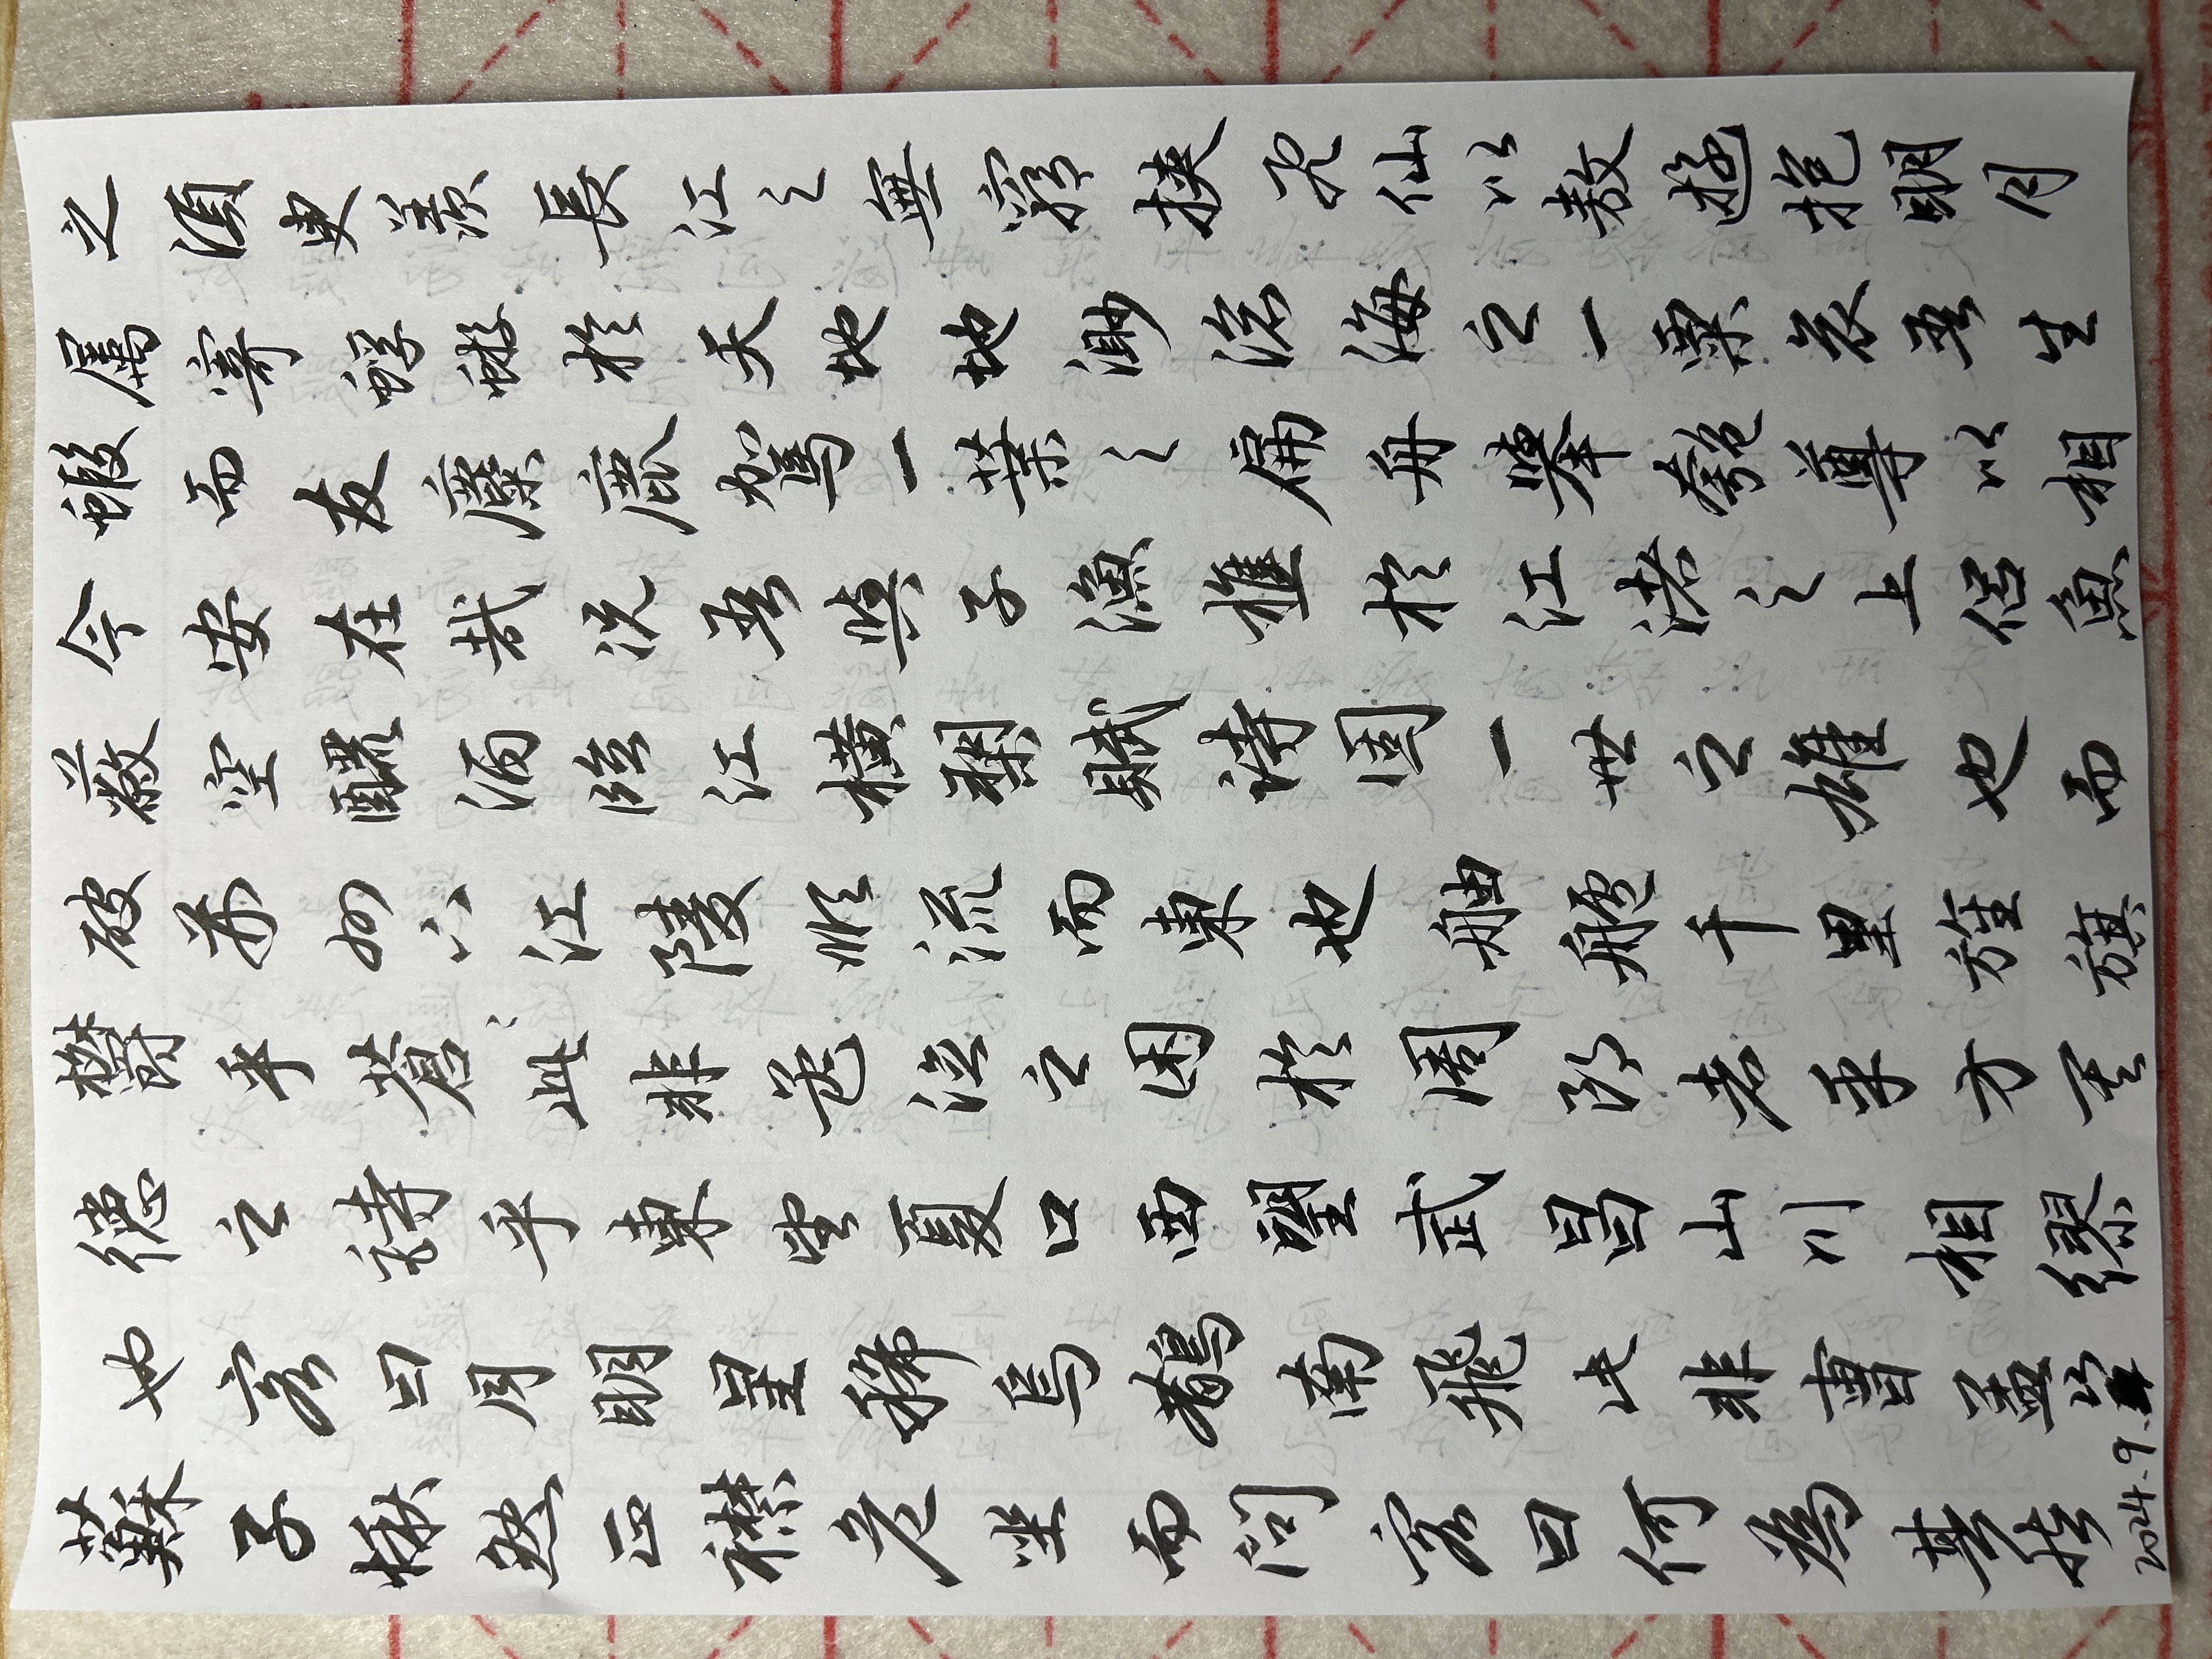 蘇子愀然正襟危坐而問客曰何為其然
也客曰月明星稀烏鵲南飛此非曹孟
德之詩乎東望夏口西望武昌山川相繆
鬱乎蒼〻此非孟德之困於周郎者乎方其
破荊州下江陵順流而東也舳艫千里旌旗
蔽空釃酒臨江橫槊賦詩固一世之雄也而
今安在哉況吾與子漁樵於江渚之上侶魚
蝦而友麋鹿駕一葉之扁舟舉匏尊以相
屬寄蜉蝣於天地地渺滄海之一粟哀吾生
之須臾羨長江之無窮挾飛仙以敖遊抱明月
2024.9.